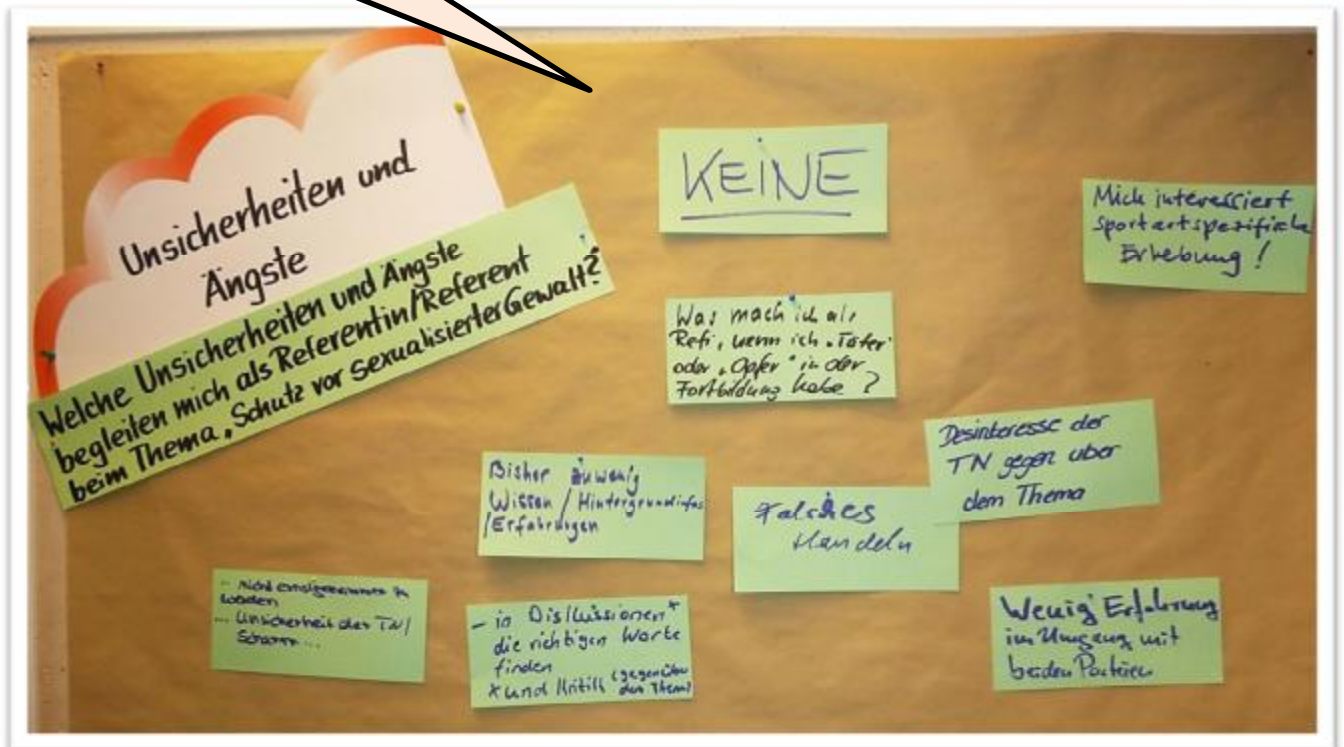 Unsicherheiten und
Ängste
Welche Unsicherheiten und Ängste
begleiten mich als Referentin/Referent
beim Thema „Schutz vor Sexualisierter Gewalt?
KEINE
Mich interessiert
sportartspezifische
Erhebung !
Was mach ich als
Refi, wenn ich „Täter"
oder „Opfer" in der
Fortbildung habe ?
Desinteresse der
TN gegen über
dem Thema
Bisher zuwenig
Wissen / Hintergrundinfos
/Erfahrungen
Falsches
Handeln
... Nicht ernstgenommen zu
werden
... Unsicherheit der TN/
Scham ...
- in Diskussionen*
die richtigen Worte
finden
* und Kritik (gegenüber
dem Thema)
Wenig Erfahrung
im Umgang mit
beiden Parteien